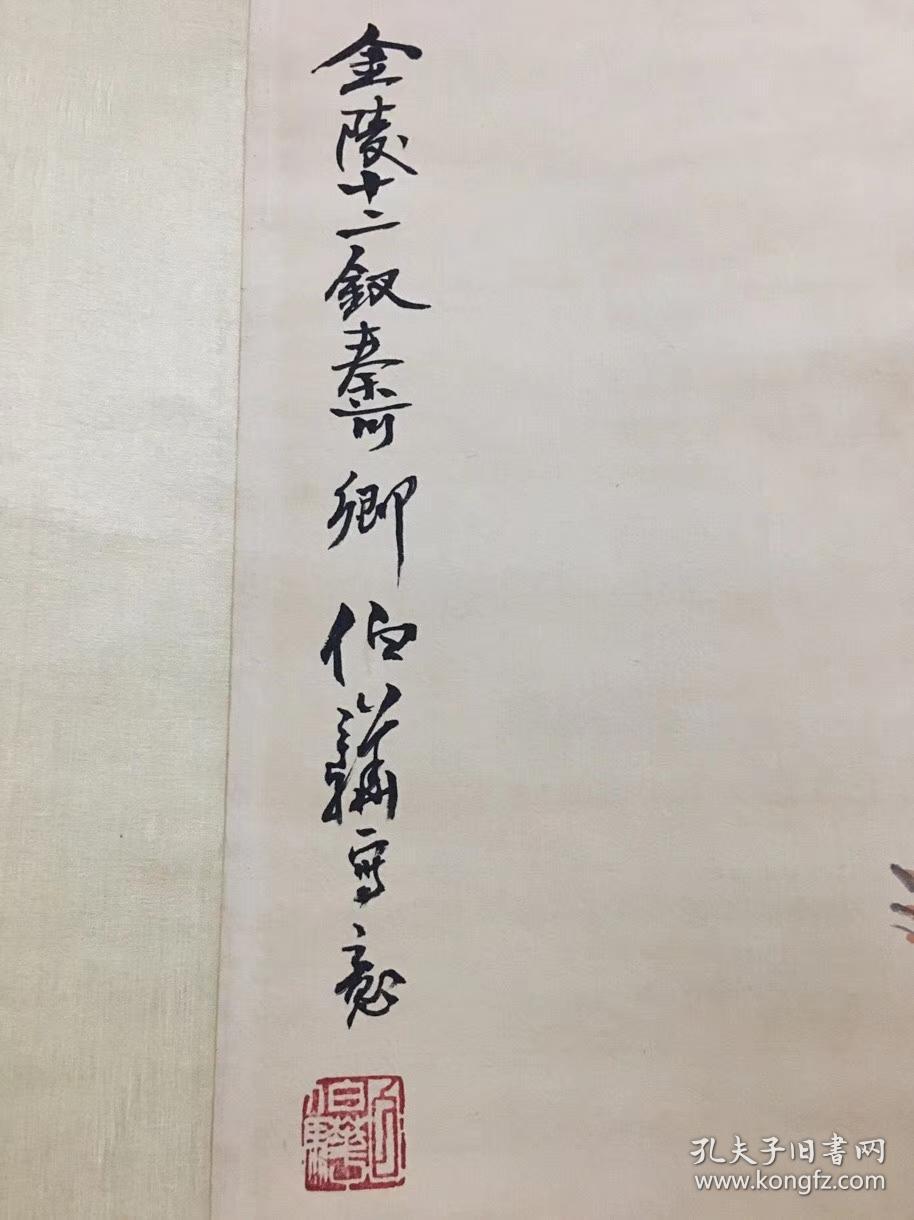 金陵十二釵秦可卿伯驊寫意
孔夫子旧书网
www.kongfz.com